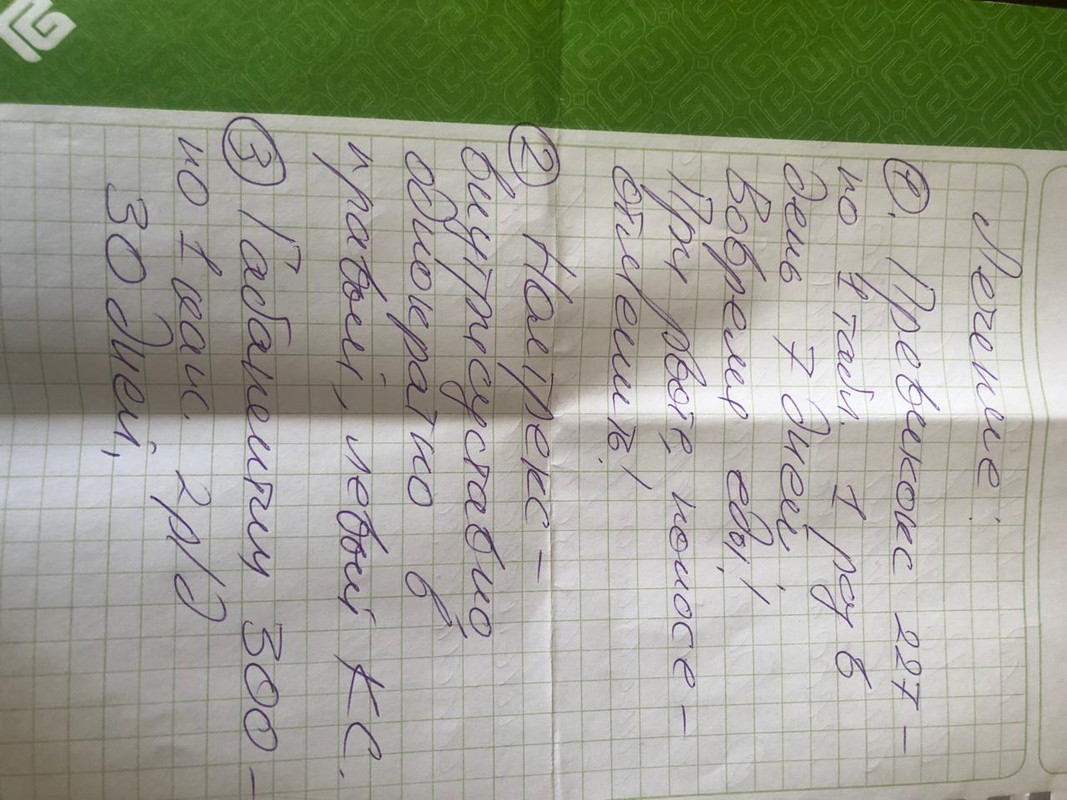 Лечение:
①. Превикокс 227 –
по 1 табл. 1 раз в
день 7 дней,
Вовремя еды!
При рвоте, поносе –
отменить!
② Ноltрекс –
внутрисуставно
однократно в
правый, левый КС.
③ Габапентин 300 –
по 1 капс. 2 р/д
30 дней,